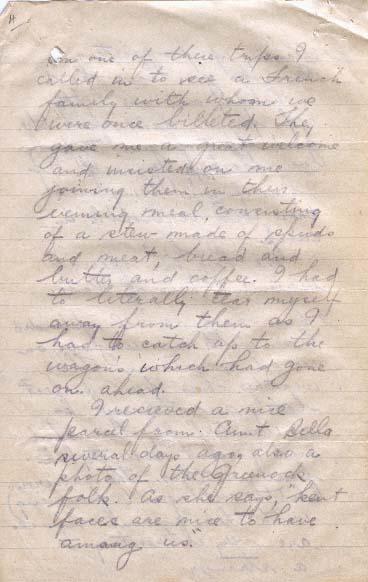 on one of these trips I
called in to see a French
family with whom we
were once billeted. They
gave me a great welcome
and insisted on me
joining them in their
evening meal, consisting
of a stew made of spuds
and meat, bread and
butter and coffee. I had
to literally tear myself
away from them as I
had to catch up to the
wagons which had gone
on ahead.
I recieved a nice
parcel from Aunt Bella
several days ago, also a
photo of the Greenock
folk. As she says, "kent
faces are nice to have
among us."